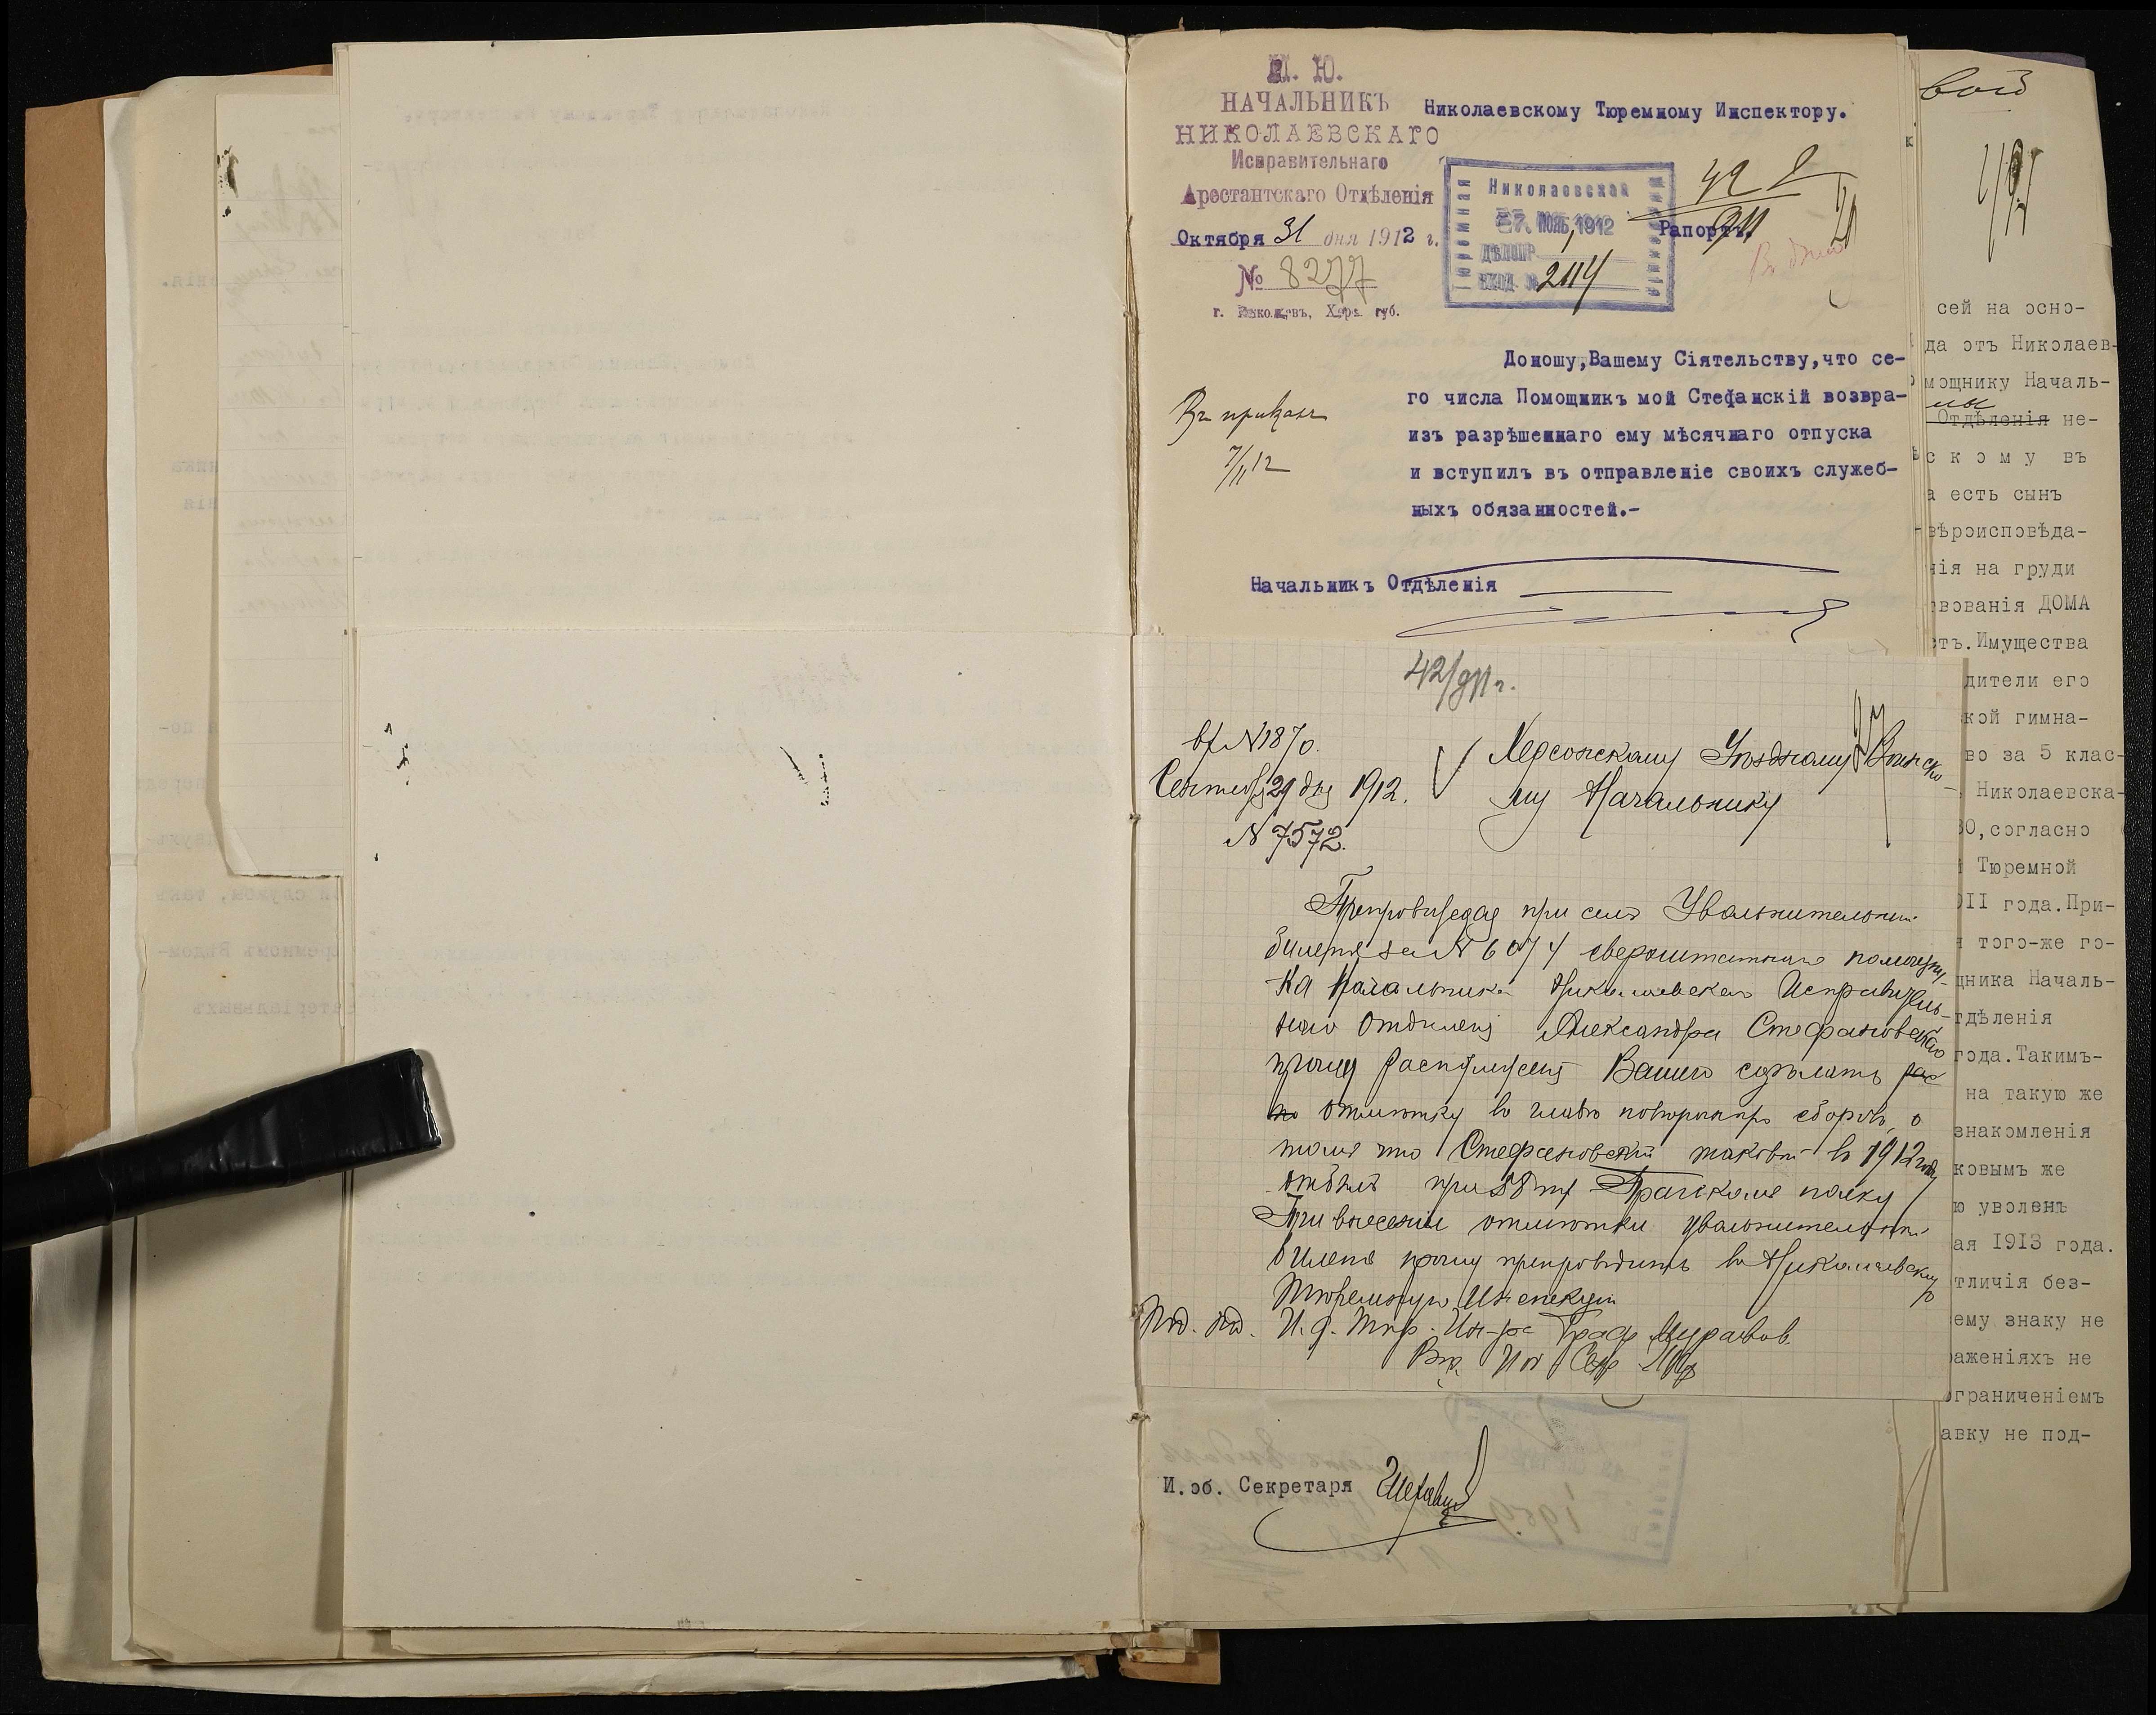 М. Ю.
НАЧАЛЬНИКЪ
НИКОЛАЕВСКАГО
Исправительнаго
Арестантскаго Отдѣленія
Октября 31 дня 1912 г.
№ 8277
г. Николаевъ, Херс. губ.
Николаевскому Тюремному Инспектору.
Николаевская
НОЯБ. 1912
ВХОД. № 2114
Рапортъ.
Въ приказъ
7/11 12
Доношу, Вашему Сіятельству, что се-
го числа Помощникъ мой Стефанскій возвра-
изъ разрѣшеннаго ему мѣсячнаго отпуска
и вступилъ въ отправленіе своихъ служеб-
ныхъ обязанностей.-
Начальникъ Отдѣленія
42/911 г.
97
вх N 1870.
Сентября 29 дня 1912.
N 7572.
Херсонскому Уѣздному Воинско-
му Начальнику
Препровождая при семъ Увольнительный
билетъ за N 6074 сверхштатнаго помощни-
ка Начальника Николаевскаго Исправитель-
наго Отдѣленія Александра Стефановскаго
прошу распоряженія Вашего сдѣлать рас
по отмѣтку въ повторныхъ сборовъ, о
томъ что Стефановскій таковой въ 1912 году
отбылъ при 58 мъ Прагскомъ полку
При внесеніи отмѣтки увольнительный
билетъ прошу препроводить въ Николаевскую
Тюремную Инспекцію
Под. под. И. д. Тюр. Ин-ра Графъ Муравьевъ.
И. об. Секретаря
вой
сей на осно-
да отъ Николаев-
мощнику Началь-
Отдѣленія не-
скому въ
а есть сынъ
вѣроисповѣда-
нія на груди
вованія ДОМА
стъ. Имущества
дители его
кой гимна-
во за 5 клас-
Николаевска-
30, согласно
Тюремной
911 года. При-
того-же го-
щника Началь-
тдѣленія
года. Такимъ-
на такую же
знакомленія
ковымъ же
ю уволенъ
ая 1913 года.
тличія без-
ему знаку не
раженіяхъ не
ограниченіемъ
авку не под-